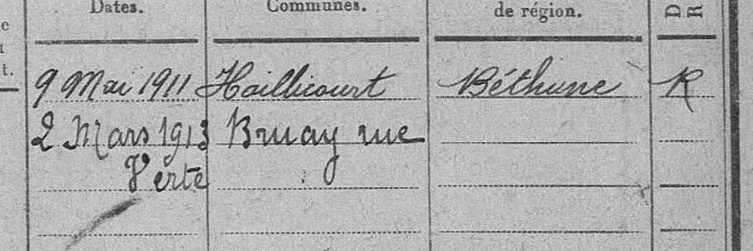 Dates. Communes. de région. D R
t.
9 Mai 1911 Haillicourt Béthune R
2 Mars 1913 Bruay rue
Verte